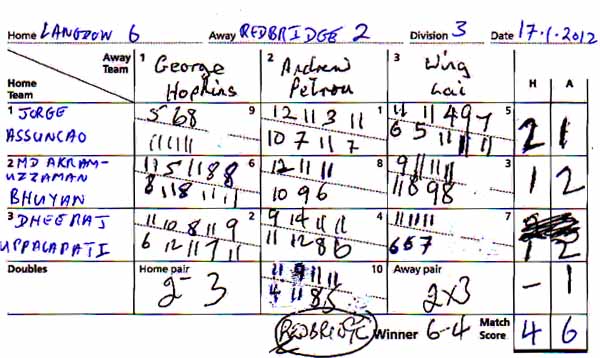 Home LANGDOW 6 Away REDBRIDGE 2 Division 3 Date 17.1.2012
Away Team 1 George Hopkins 2 Andrew Petrou 3 Wing Lai H A
Home Team
1 JORGE ASSUNCAO 5 6 8 9 12 11 3 11 1 11 11 4 9 7 5 2 1
11 11 11 10 7 11 7 6 5 11 11 11
2 MD AKRAM-UZZAMAN BHUYAN 11 5 11 8 8 6 12 11 11 8 9 11 11 11 3 1 2
8 11 8 11 11 10 9 6 11 8 9 8
3 DHEERAJ UPPALAPATI 11 10 8 11 9 2 9 14 11 11 4 11 11 11 7 1 2
6 12 11 7 11 11 12 8 6 6 5 7
Doubles Home pair 2-3 11 9 11 11 10 Away pair 2x3 - 1
4 11 8 5
REDBRIDGE Winner 6-4 Match Score 4 6